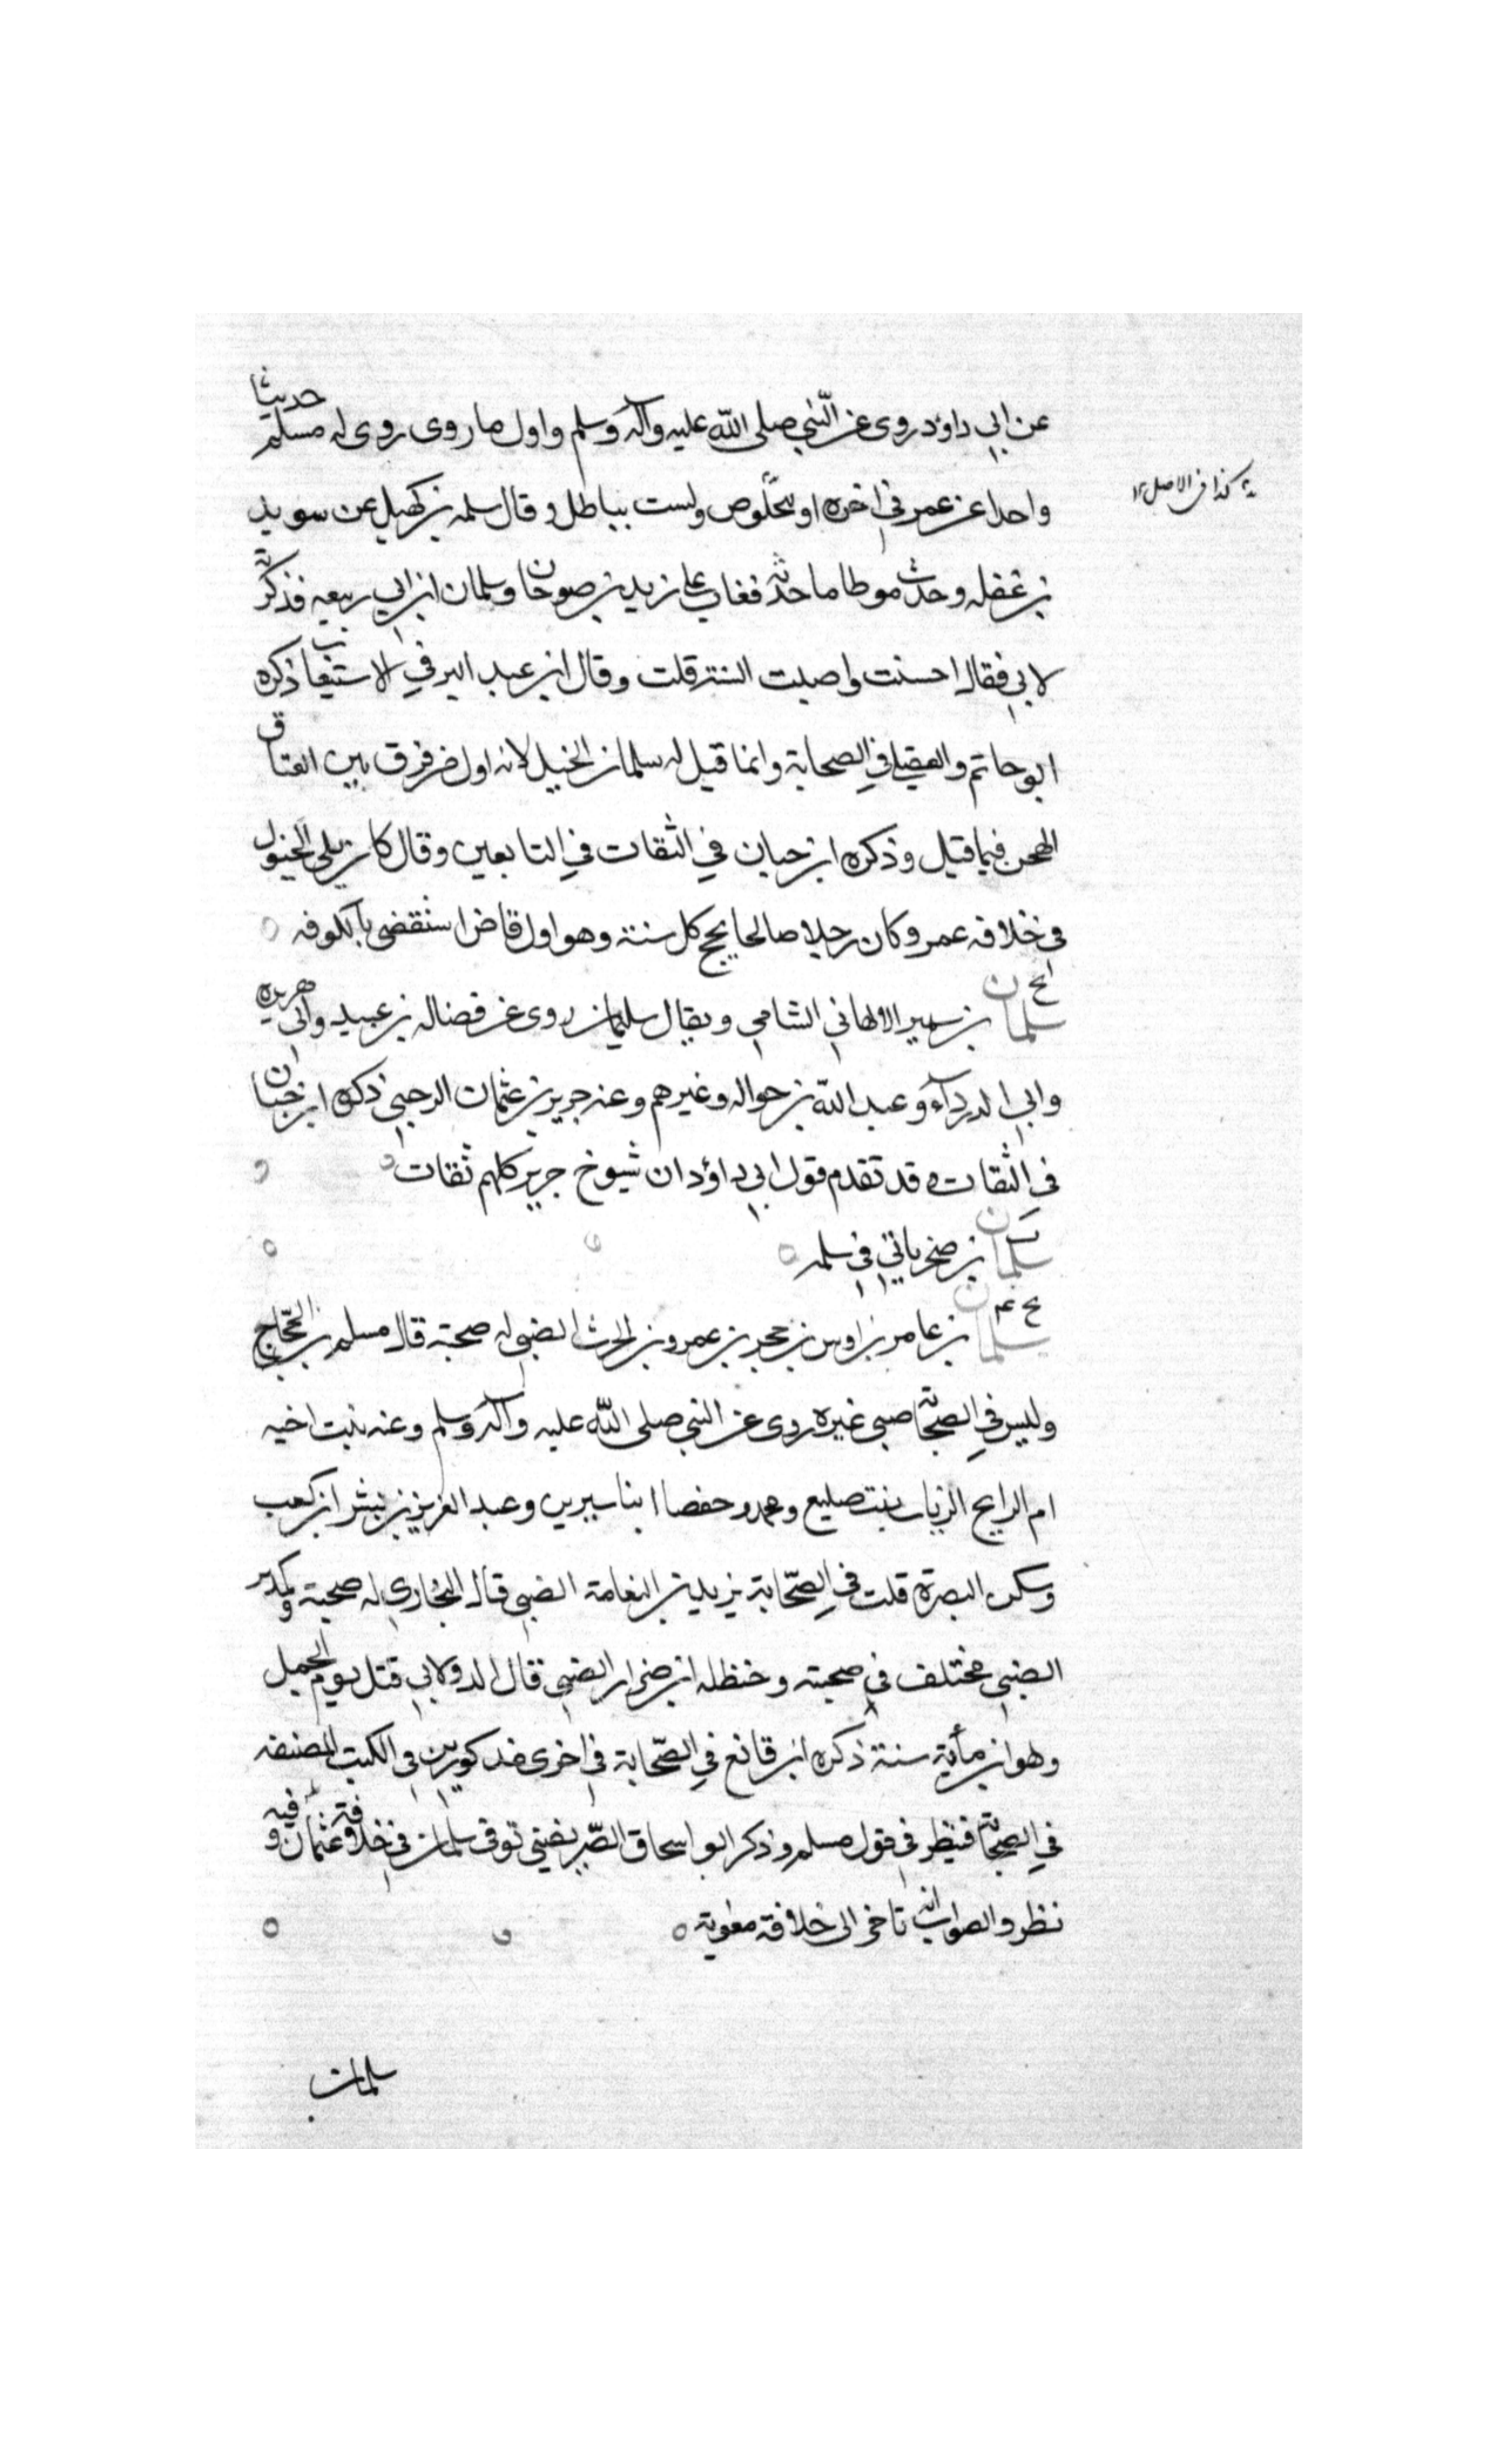 عن ابي داؤد روى عن النبي صلى الله عليه وآله وسلم واول ما روى روى له مسلم حديثا
واحدا عن عمر في اخره او بخلوص وليست بباطل وقال سلمه بن كهيل عن سويد
كذا في الاصل ١٢
بن غفله وحدث موطا ما حدثه فغاب على زيد بن صوحان وسلمان ابن ابي ربيعه فذكرته
لابي فقال احسنت واصبت السنة قلت وقال ابن عبد البر في الاستيعاب ذكره
ابو حاتم والعقيلي في الصحابة وانما قيل له سلمان الخيل لانه اول من فرق بين العتاق
الهجن فيما قيل وذكره ابن حبان في الثقات في التابعين وقال كان يلي الخيول
في خلافه عمر وكان رجلا صالحا يحج كل سنة وهو اول قاض استقضى بالكوفه
سلمان بن سمير الالهاني الشامي ويقال سليمان روى عن فضاله بن عبيد وابي هريره
وابي الدرداء وعبد الله بن حواله وغيرهم وعنه جرير بن عثمان الرحبي ذكره ابن حبان
في الثقات وقد تقدم قول ابي داؤد ان شيوخ جرير كلهم ثقات
سلمان بن صخر ياتي في سلمه
سلمان بن عامر بن اوس بن حجر بن عمرو بن الحرث الضبي له صحبة قال مسلم بن الحجاج
وليس في الصحابة ضبي غيره روى عن النبي صلى الله عليه وآله وسلم وعنه بنت اخيه
ام الرايح الرباب بنت صليع ومحمد وحفصا ابنا سيرين وعبد العزيز بن بشر ابن كعب
وسكن البصرة قلت في الصحابة يزيد بن النعامة الضبي قال البخاري له صحبة وكدير
الضبي مختلف في صحبته وحنظله ابن ضرار الضبي قال الدولابي قتل يوم الجمل
وهو ابن مأية سنة ذكره ابن قانع في الصحابة في اخرى مذكورين في الكتب المصنفه
في الصحابة فينظر في قول مسلم وذكر ابو اسحاق الصريفيني توفى سلمان في خلافة عثمان وفيه
نظر والصواب انه تاخر الى خلافة معوية
سلمان